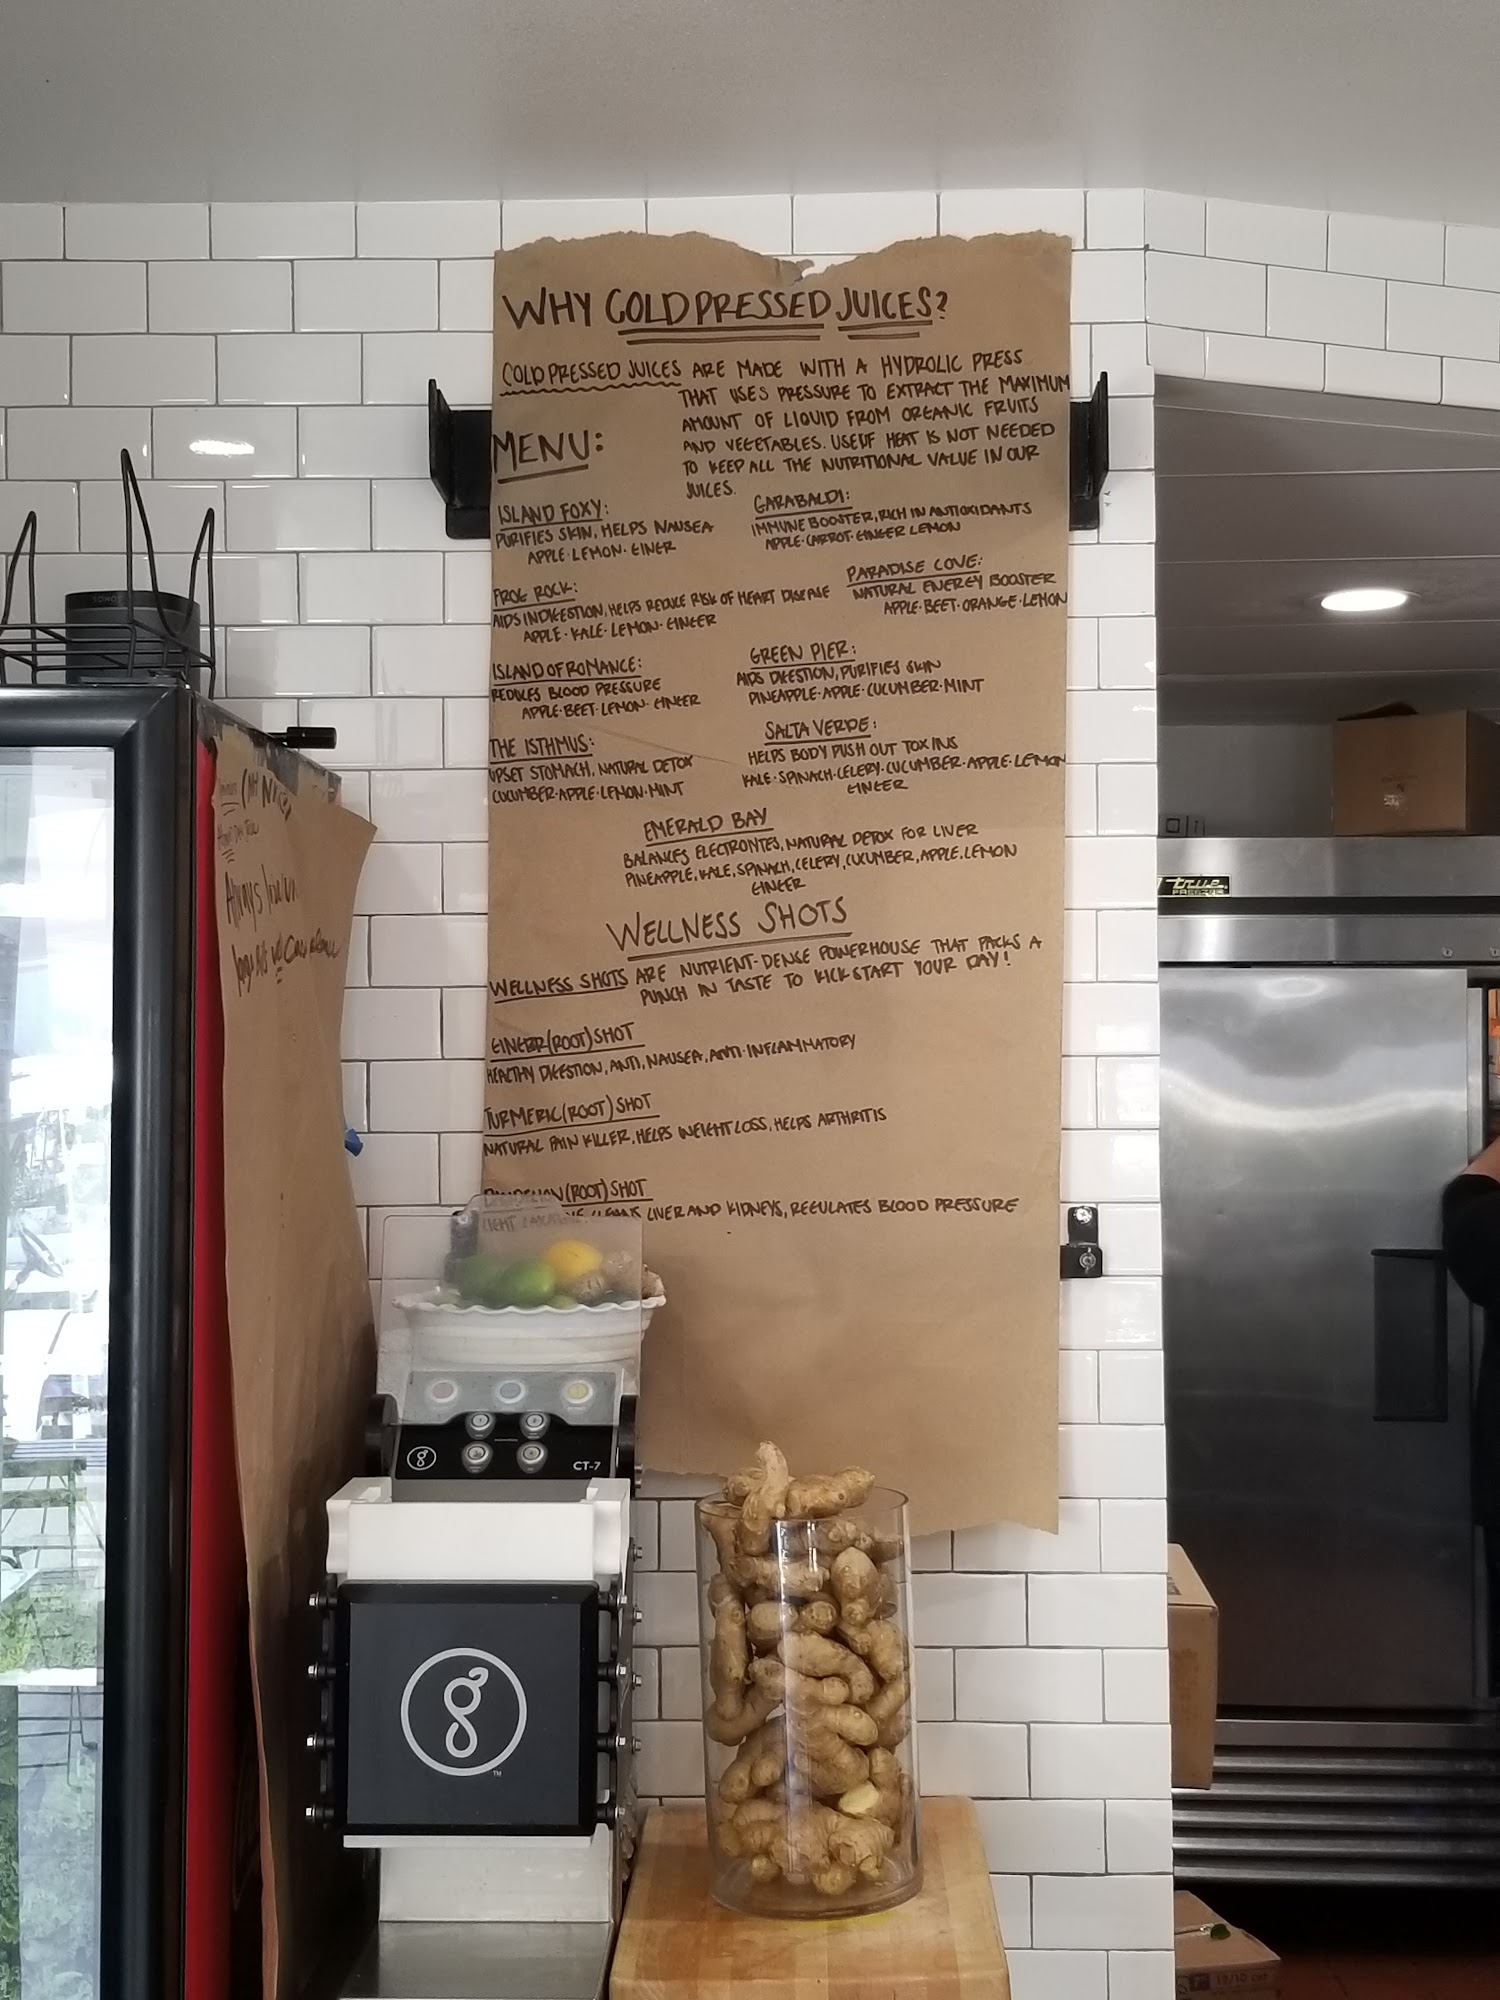 WHY COLD PRESSED JUICES?
COLD PRESSED JUICES ARE MADE WITH A HYDROLIC PRESS
THAT USES PRESSURE TO EXTRACT THE MAXIMUM
AMOUNT OF LIQUID FROM ORGANIC FRUITS
AND VEGETABLES. USE OF HEAT IS NOT NEEDED
TO KEEP ALL THE NUTRITIONAL VALUE IN OUR
JUICES.
MENU:
ISLAND FOXY:
PURIFIES SKIN, HELPS NAUSEA
APPLE·LEMON·GINER
GARABALDI:
IMMUNE BOOSTER, RICH IN ANTIOXIDANTS
APPLE·CARROT·GINGER LEMON
FROG ROCK:
AIDS INDIGESTION, HELPS REDUCE RISK OF HEART DISEASE
APPLE·KALE·LEMON·GINGER
PARADISE COVE:
NATURAL ENERGY BOOSTER
APPLE·BEET·ORANGE·LEMON
ISLAND OF ROMANCE:
REDUCES BLOOD PRESSURE
APPLE·BEET·LEMON·GINGER
GREEN PIER:
AIDS DIGESTION, PURIFIES SKIN
PINEAPPLE·APPLE·CUCUMBER·MINT
THE ISTHMUS:
UPSET STOMACH, NATURAL DETOX
CUCUMBER·APPLE·LEMON·MINT
SALTA VERDE:
HELPS BODY PUSH OUT TOXINS
KALE·SPINACH·CELERY·CUCUMBER·APPLE·LEMON
GINGER
EMERALD BAY
BALANCES ELECTROYTES, NATURAL DETOX FOR LIVER
PINEAPPLE, KALE, SPINACH, CELERY, CUCUMBER, APPLE, LEMON
GINGER
WELLNESS SHOTS
WELLNESS SHOTS ARE NUTRIENT-DENSE POWERHOUSE THAT PACKS A
PUNCH IN TASTE TO KICKSTART YOUR DAY!
GINGER (ROOT) SHOT
HEALTHY DIGESTION, ANTI, NAUSEA, ANTI-INFLAMMATORY
TURMERIC (ROOT) SHOT
NATURAL PAIN KILLER, HELPS WEIGHT LOSS, HELPS ARTHRITIS
DANDELION (ROOT) SHOT
CLEANS LIVER AND KIDNEYS, REGULATES BLOOD PRESSURE
SONOS
Always
true
FREEZER
CT-7
g
TM
12/10 cat